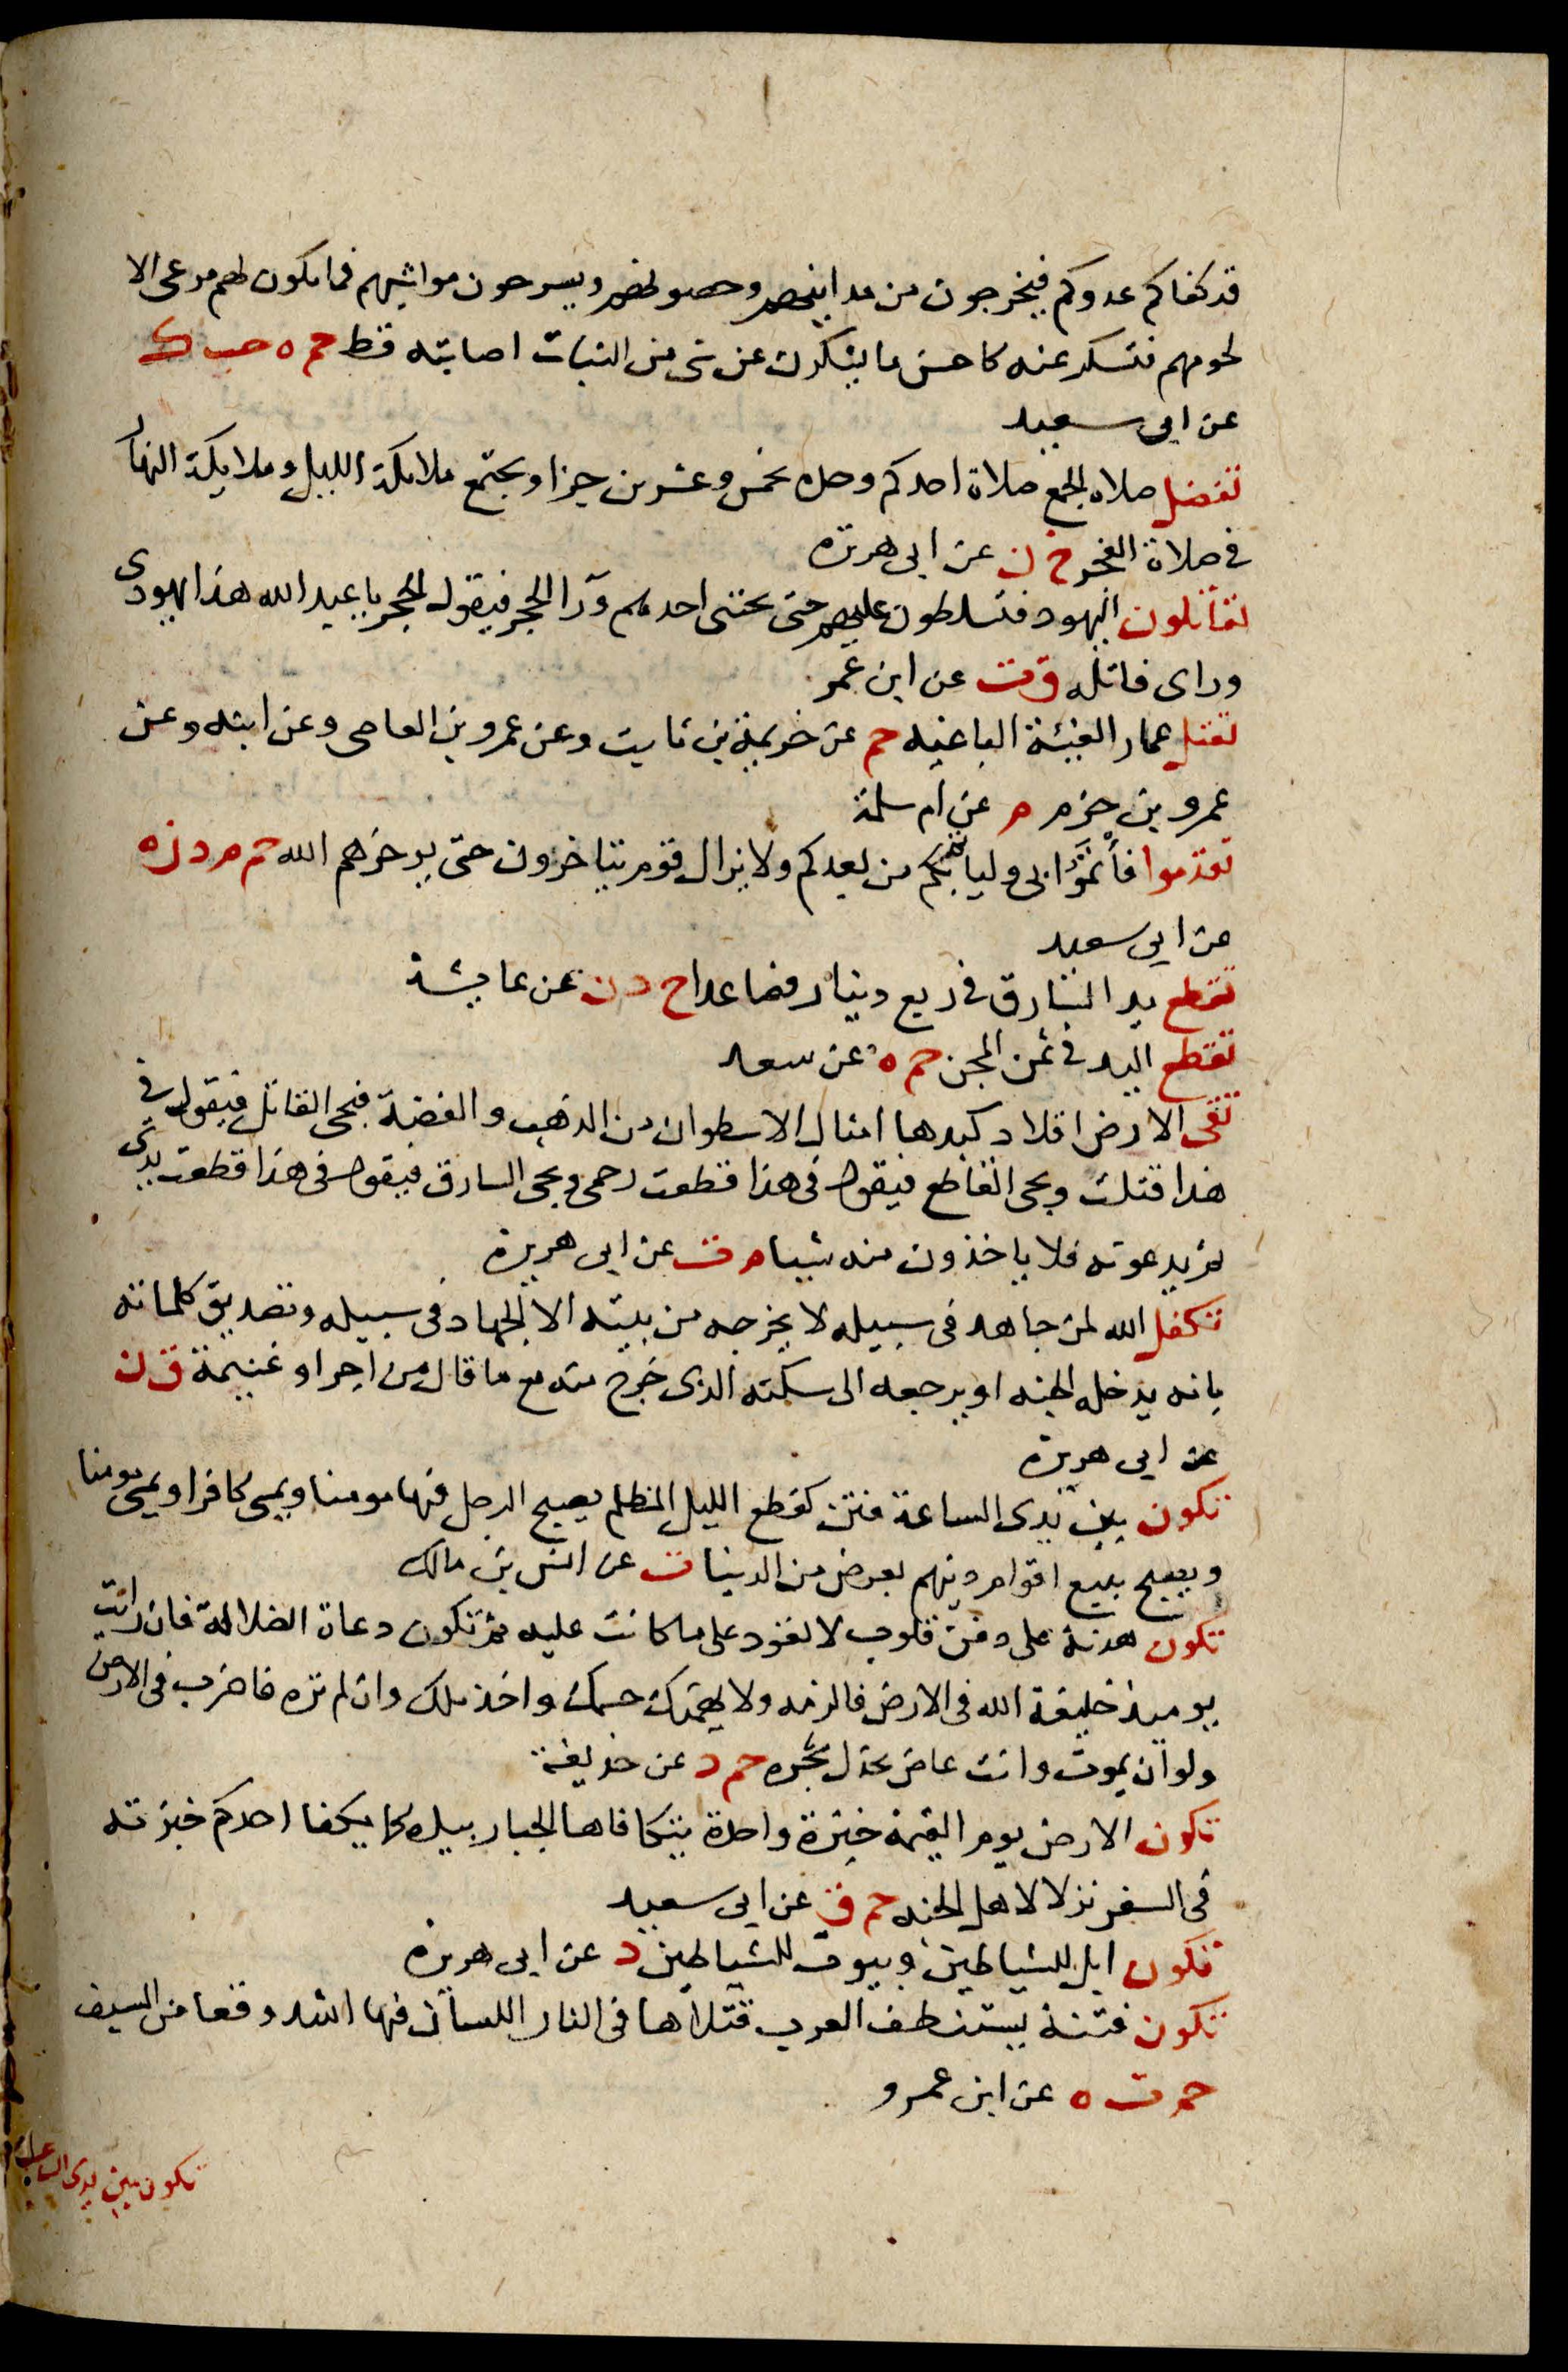 قد كفاكم عدوكم فيخرجون من مداينهم وحصونهم ويسرحون مواشيهم فما يكون لهم مرعى الا
لحومهم فتسكر عنه كاحسن ما يشكرت عن شى من النبات اصابته قط حم ه حب ك
عن ابى سعيد
تفضل صلاه الجمع صلاة احدكم وحده بخمس وعشرين جزا ويجتمع ملايكة الليل وملايكة النهار
فى صلاة الفجر خ ن عن ابى هريره
تقاتلون اليهود فتسلطون عليهم حتى يختبى احدهم ورا الحجر فيقول الحجر يا عبد الله هذا يهودى
وراى فاقتله ق ت عن ابن عمر
تقتل عمار الفئية الباغيه حم عن خزيمة بن ثابت وعن عمرو بن العاصى وعن ابنه وعن
عمرو بن حزم م عن ام سلمة
تقدموا فأتموا بى وليأتم بكم من بعدكم ولا يزال قوم يتاخرون حتى يوخرهم الله حم م د ن ه
عن ابى سعيد
تقطع يد السارق فى ربع دينار فصاعدا خ د ن عن عايشة
تقطع اليد فى ثمن المجن حم ه عن سعد
تقى الارض افلاد كبدها امثال الاسطوان من الذهب والفضة فيجى القاتل فيقول فى
هذا قتلت ويجى القاطع فيقول فى هذا قطعت رحمى ويجى السارق فيقول فى هذا قطعت يدى
ثم يدعونه فلا ياخذون منه شيبا م ت عن ابى هريرة
تكفل الله لمن جاهد فى سبيله لا يخرجه من بيته الا الجهاد فى سبيله وتصديق كلماته
بانه يدخله الجنه او يرجعه الى سكنه الذى خرج منه مع ما قال من اجر او غنيمة ق ن
عن ابى هريرة
تكون بين يدى الساعة فتن كقطع الليل المظلم يصبح الرجل فيها مومنا ويمسى كافرا ويمسى مومنا
ويصبح يبيع اقوام دينهم بعرض من الدنيا ت عن انس بن مالك
تكون هدنة على دخن قلوب لا تعود على ما كانت عليه ثم تكون دعاة الضلالة فان رايت
يوميذ خليفة الله فى الارض فالزمه ولا يهمنك جسمك واخذ ملك وان لم تره فاضرب فى الارض
ولو ان يموت وانت عاض بجذل شجره حم د عن حذيفة
تكون الارض يوم القيمة خبزة واحدة يتكافاها الجبار بيده كما يكفا احدكم خبزته
فى السفر نزلا لاهل الجنه حم ق عن ابى سعيد
تكون ابل للشياطين وبيوت للشياطين د عن ابى هريره
تكون فتنة يستنطف العرب قتلاها فى النار اللسان فيها اشد وقعا من السيف
حم ت ه عن ابن عمرو
تكون بين يدى الساعة